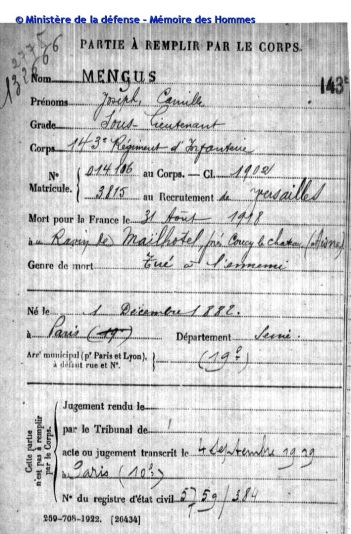 © Ministère de la défense - Mémoire des Hommes
PARTIE À REMPLIR PAR LE CORPS.
Nom MENGUS
143e
Prénoms Joseph, Camille
Grade Sous Lieutenant
Corps 143e Régiment d'Infanterie
N° Matricule. 014106 au Corps. — Cl. 1902
3815 au Recrutement de Versailles
Mort pour la France le 31 Août 1918
à au Ravin de Mailhotel, près Coucy le Chateau (Aisne)
Genre de mort Tué à l'ennemi
Né le 1 Décembre 1882.
à Paris (19e) Département Seine
Arrt municipal (pr Paris et Lyon), à défaut rue et N°. (19e)
Cette partie n'est pas à remplir par le Corps.
Jugement rendu le
par le Tribunal de
acte ou jugement transcrit le 4 Septembre 1919
à Paris (10e)
N° du registre d'état civil 5759/384
259-708-1922. [26434]